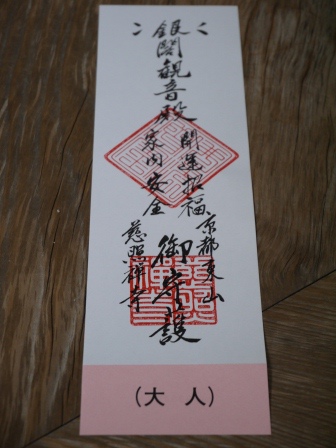 銀閣観音殿
開運招福
家内安全
京都東山
慈照禅寺
御守護
（大　人）